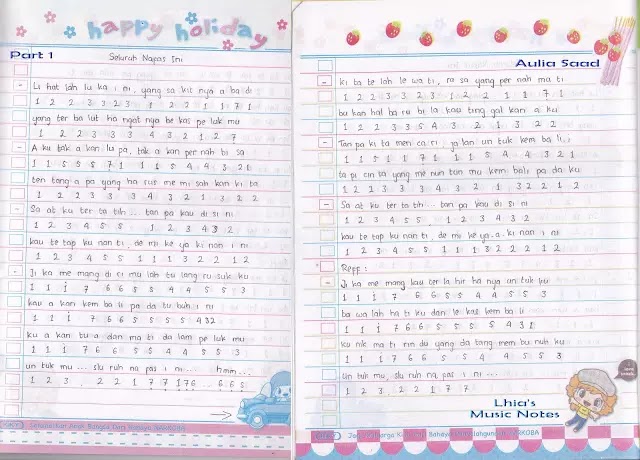 happy holiday
Part 1
Seluruh Napas Ini
Li hat lah lu ka i ni, yang sa kit nya a ba di
1 2 2 3 3 2 3 1 2 2 1 1 7 1
yang ter ba lut ha ngat nya be kas pe luk mu
1 2 2 3 3 3 4 3 2 1 2 7
A ku tak a kan lu pa, tak a kan per nah bi sa
1 1 5 5 5 7 1 1 1 5 4 4 3 2 1
ten tang a pa yang ha rus me mi sah kan ki ta
1 2 2 3 3 3 3 4 3 2 1 3 2 2
Sa at ku ter ta tih ... tan pa kau di si ni
1 2 3 4 5 5 1 2 3 4 3 2
kau te tap ku nan ti, de mi ke ya ki nan i ni
1 2 3 4 5 5 1 1 1 3 2 2 1 2
Ji ka me mang di ri mu lah tu lang ru suk ku
1 1 i 7 6 6 5 5 4 4 5 5 3
kau a kan kem ba li pa da tu buh i ni
1 1 i 7 6 6 5 5 5 5 4 3 2
ku a kan tu a dan ma ti da lam pe luk mu
1 1 i 7 6 6 5 5 4 4 5 5 3
un tuk mu ... slu ruh na pas i ni ... hmm...
1 2 3 . 2 2 1 7 7 1 7 6 . . 6 6 5
Selamatkan Anak Bangsa Dari Bahaya NARKOBA
Aulia Saad
ki ta te lah le wa ti, ra sa yang per nah ma ti
1 2 2 3 3 2 3 1 2 2 1 1 7 1
bu kan hal ba ru bi la kau ting gal kan a ku
1 2 2 3 3 5 4 3 2 1 3 2 2
Tan pa ki ta men ca ri, ja lan un tuk kem ba li
1 1 5 1 1 7 1 1 1 5 4 4 3 2 1
ta pi cin ta yang me nun tun mu kem bali pa da ku
1 2 2 3 3 3 4 3 2 1 3 2 2 1 2
Sa at ku ter ta tih ... tan pa kau di si ni
1 2 3 4 5 5 1 2 3 4 3 2
kau te tap ku nan ti, de mi ke ya ki nan i ni
1 2 3 4 5 5 1 1 1 3 2 2 2 1 2
Reff :
Ji ka me mang kau ter la hir ha nya un tuk ku
1 1 i 7 6 6 5 5 4 4 5 5 3
ba wa lah ha ti ku dan le kas kem ba li
1 1 i 7 6 6 5 5 5 5 4 3 1
ku nik ma ti rin du yang da tang mem bu nuh ku
1 1 i 7 6 6 5 5 4 4 5 5 3
un tuk mu, slu ruh na pas i ni ...
1 2 3 . 2 2 1 7 7
Lhia's
Music Notes